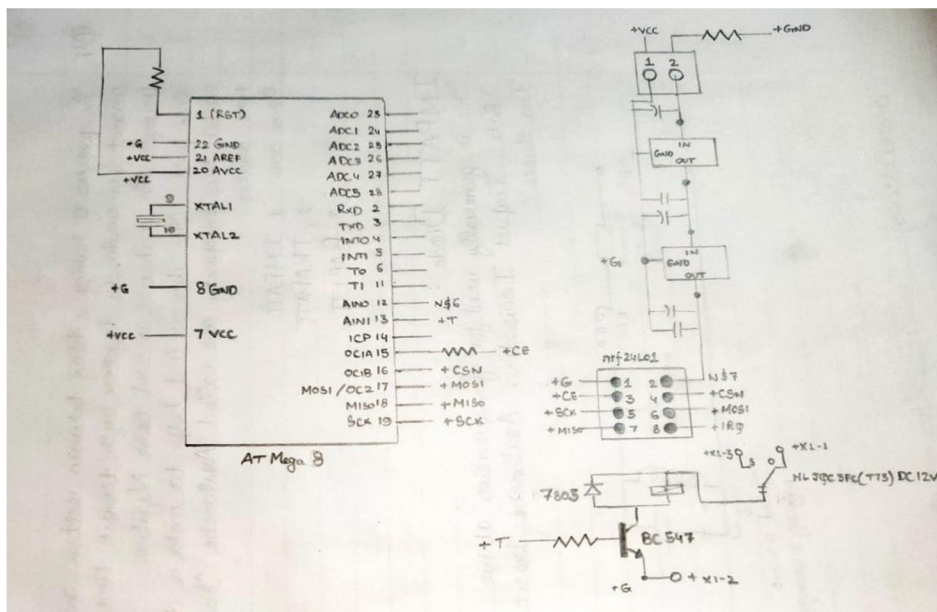 1 (RST)
+G 22 GND
+VCC 21 AREF
+VCC 20 AVCC
9 XTAL1
10 XTAL2
+G 8 GND
+VCC 7 VCC
ADC0 23
ADC1 24
ADC2 25
ADC3 26
ADC4 27
ADC5 28
RXD 2
TXD 3
INT0 4
INT1 5
T0 6
T1 11
AIN0 12 N$6
AIN1 13 +T
ICP 14
OC1A 15 +CE
OC1B 16 +CSN
MOSI/OC2 17 +MOSI
MISO 18 +MISO
SCK 19 +SCK
ATMega 8
+VCC +GND
1 2
IN
GND
OUT
IN
+G GND
OUT
nrf24L01
+G 1 2 N$7
+CE 3 4 +CSN
+SCK 5 6 +MOSI
+MISO 7 8 +IRQ
+X1-3 +X1-1
DC 12V
+T BC547
+G +X1-2